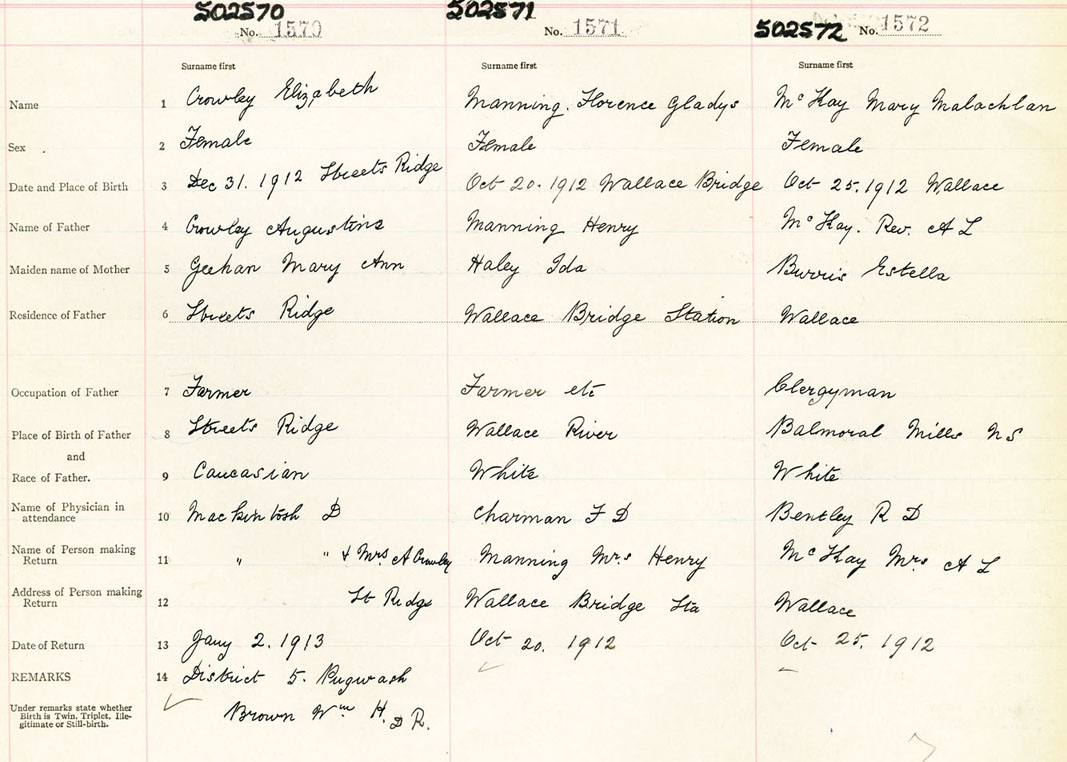 502570 502571 502572
No. 1570 No. 1571 No. 1572
Surname first Surname first Surname first
Name 1 Crowley Elizabeth Manning. Florence Gladys McKay Mary Malachlan
Sex 2 Female Female Female
Date and Place of Birth 3 Dec 31. 1912 Streets Ridge Oct 20. 1912 Wallace Bridge Oct 25. 1912 Wallace
Name of Father 4 Crowley Augustine Manning Henry McKay. Rev. A L
Maiden name of Mother 5 Geehan Mary Ann Haley Ida Burris Estella
Residence of Father 6 Streets Ridge Wallace Bridge Station Wallace
Occupation of Father 7 Farmer Farmer etc Clergyman
Place of Birth of Father 8 Streets Ridge Wallace River Balmoral Mills NS
and
Race of Father. 9 Caucasian White White
Name of Physician in
attendance 10 Mackintosh D Charman F D Bentley R D
Name of Person making
Return 11 " " & Mrs A Crowley Manning Mrs Henry McKay Mrs A L
Address of Person making
Return 12 St Ridge Wallace Bridge Sta Wallace
Date of Return 13 Jany 2. 1913 Oct 20. 1912 Oct 25. 1912
REMARKS 14 District 5. Pugwash
Under remarks state whether
Birth is Twin, Triplet, Ille-
gitimate or Still-birth.
Brown Wm H. D R.